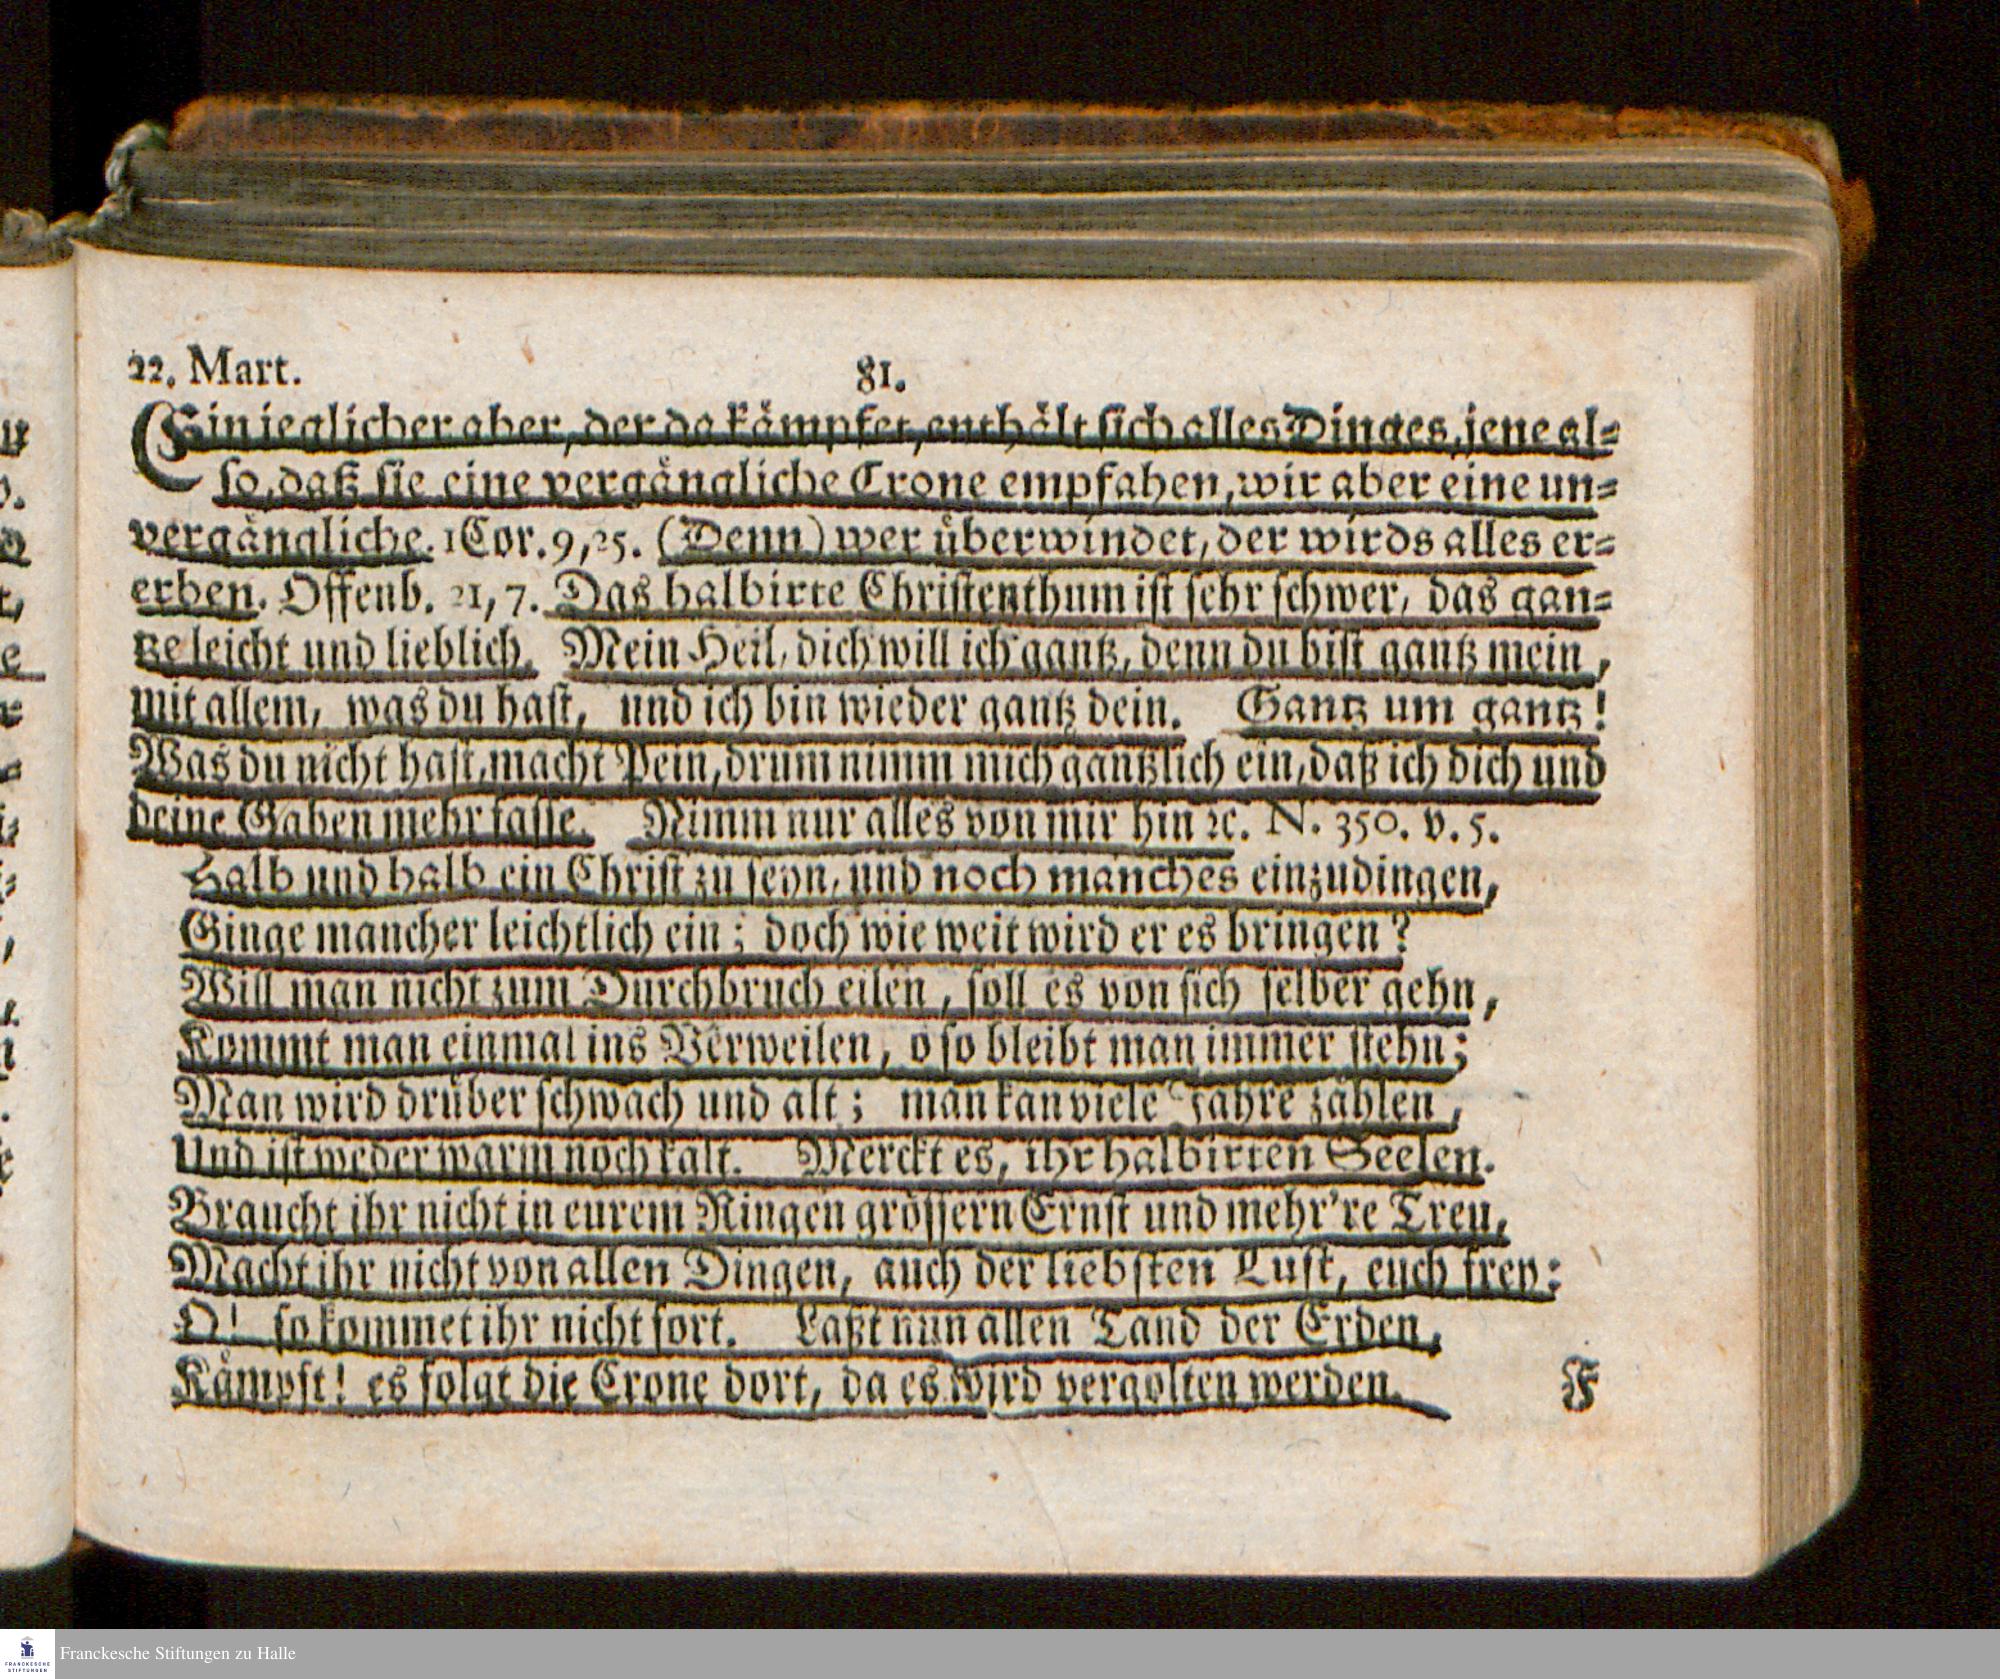 22. Mart. 81.
Ein jeglicher aber, der da kämpfet, enthält sich alles Dinges, jene al-
so, daß sie eine vergängliche Crone empfahen, wir aber eine un-
vergängliche. 1 Cor. 9, 25. (Denn) wer überwindet, der wirds alles er-
erben. Offenb. 21, 7. Das halbirte Christenthum ist sehr schwer, das gan-
tze leicht und lieblich. Mein Heil, dich will ich gantz, denn du bist gantz mein,
mit allem, was du hast, und ich bin wieder gantz dein. Gantz um gantz!
Was du nicht hast, macht Pein, drum nimm mich gäntzlich ein, daß ich dich und
deine Gaben mehr fasse. Nimm nur alles von mir hin ꝛc. N. 350. v. 5.
Halb und halb ein Christ zu seyn, und noch manches einzudingen,
Ginge mancher leichtlich ein; doch wie weit wird er es bringen?
Will man nicht zum Durchbruch eilen, soll es von sich selber gehn,
Kommt man einmal ins Verweilen, o so bleibt man immer stehn;
Man wird drüber schwach und alt; man kan viele Jahre zählen,
Und ist weder warm noch kalt. Merckt es, ihr halbirten Seelen.
Braucht ihr nicht in eurem Ringen grössern Ernst und mehr're Treu,
Macht ihr nicht von allen Dingen, auch der liebsten Lust, euch frey:
O! so kommet ihr nicht fort. Laßt nun allen Tand der Erden,
Kämpft! es folgt die Crone dort, da es wird vergolten werden.
F
Franckesche Stiftungen zu Halle
FRANCKESCHE
STIFTUNGEN